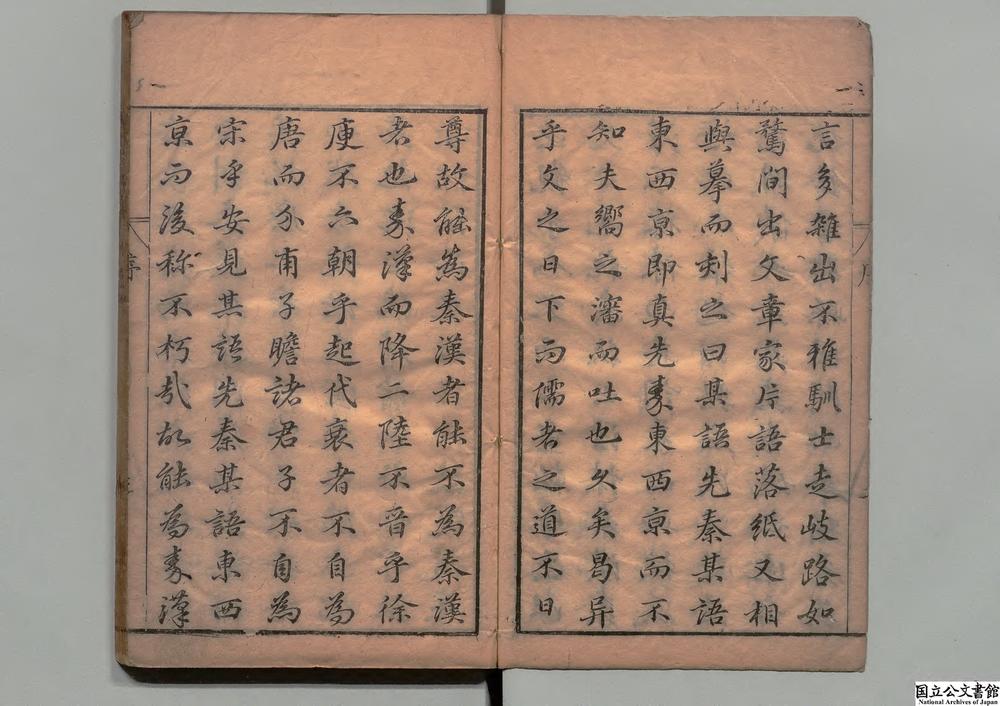 言多雜出不雅馴士走岐路如
騖間出文章家片語落紙又相
與摹而刺之曰某語先秦某語
東西京即真先秦東西京而不
知夫嚮之瀋而吐也久矣曷异
乎文之日下而儒者之道不日
尊故能為秦漢者能不為秦漢
者也秦漢而降二陸不晉乎徐
庾不六朝乎起代衰者不自為
唐而介甫子瞻諸君子不自為
宋乎安見其語先秦某語東西
京而後称不朽哉故能為秦漢
序
国立公文書館
National Archives of Japan